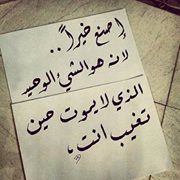 إصنع خيراً ..
لانه هو الشيء الوحيد
الذي لايموت حين
تغيب انت ،